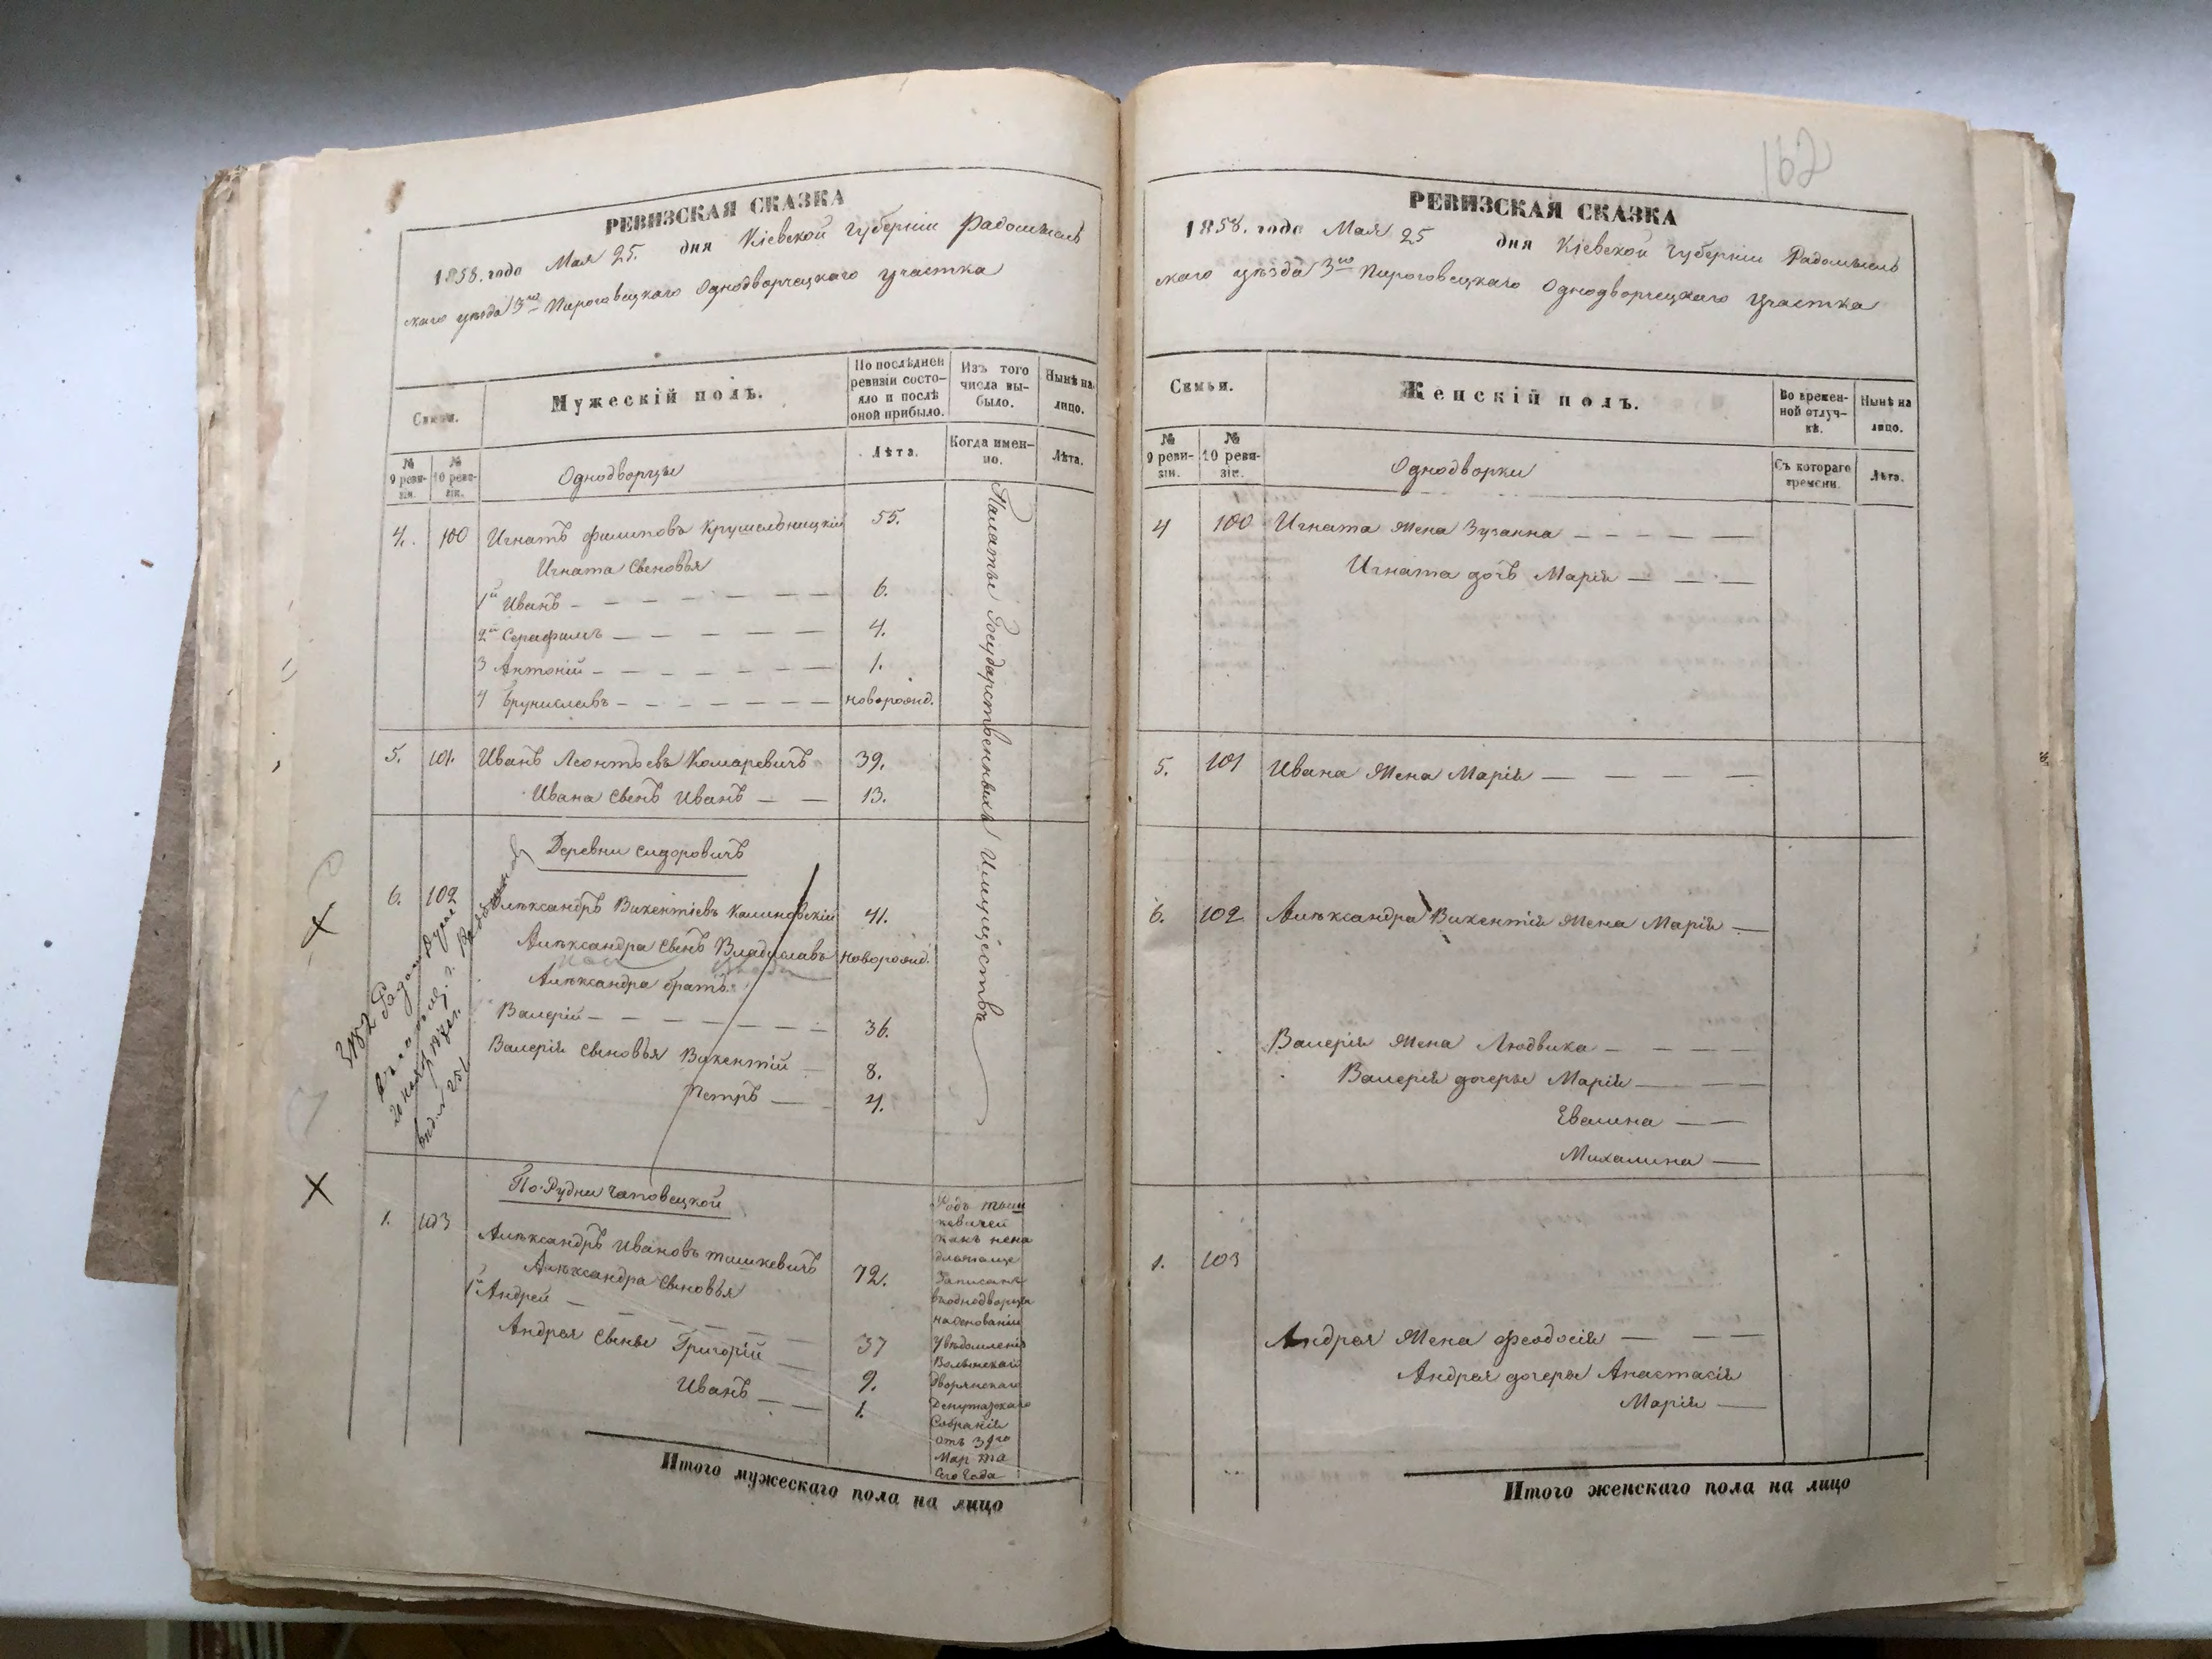 РЕВИЗСКАЯ СКАЗКА
1858. года Мая 25. дня Кіевской Губерніи Радомысль
скаго уѣзда 3го Пироговецкаго Однодворческаго участка
Семьи.
Мужескій полъ.
По послѣдней
ревизіи состо-
яло и послѣ
оной прибыло.
Изъ того
числа вы-
было.
Нынѣ на
лицо.
№
9 реви-
зіи.
№
10 реви-
зіи.
Однодворцы
Лѣта.
Когда имен-
но.
Лѣта.
4. 100 Игнатъ Филиповъ Крушельницкій 55.
Игната Сыновья
1й Иванъ — 6.
2й Серафимъ — 4.
3 Антоній — 1.
4 Бруниславъ — новорожд.
Палаты Государственныхъ Имуществъ
5. 101. Иванъ Леонтьевъ Комаревичъ 39.
Ивана Сынъ Иванъ — 13.
Деревни Сидоровичъ
6. 102 Александръ Викентіевъ Калиновскій 41.
Александра Сынъ Владиславъ новорожд.
Александра братъ
Валерій — 36.
Валерія Сыновья Викентій — 8.
Петръ — 4.
По Рудни Чаповецкой
1. 103 Александръ Ивановъ Тишкевичъ 72.
Александра Сыновья
1й Андрей — 37
Андрея Сыны Григорій — 9.
Иванъ — 1.
Родъ Тыш
кевичей
какъ нена
длежаще
Записанъ
въ однодворцы
на основаніи
Увѣдомленія
Волынскаго
Дворянскаго
Депутатскаго
Собранія
отъ 31го
Марта
Сего года
Итого мужескаго пола на лицо
162
РЕВИЗСКАЯ СКАЗКА
1858. года Мая 25 дня Кіевской Губерніи Радомысль
скаго уѣзда 3го Пироговецкаго Однодворческаго Участка
Семьи.
Женскій полъ.
Во времен-
ной отлуч-
кѣ.
Нынѣ на
лицо.
№
9 реви-
зіи.
№
10 реви-
зіи.
Однодворки
Съ котораго
времени.
Лѣта.
4 100 Игната Жена Зузанна —
Игната дочь Марія —
5. 101 Ивана Жена Марія —
6. 102 Александра Викентія Жена Марія —
Валерія Жена Людвика —
Валерія дочеры Марія —
Евелина —
Михалина —
1. 103
Андрея Жена Феодосія —
Андрея дочеры Анастасія
Марія —
Итого женскаго пола на лицо